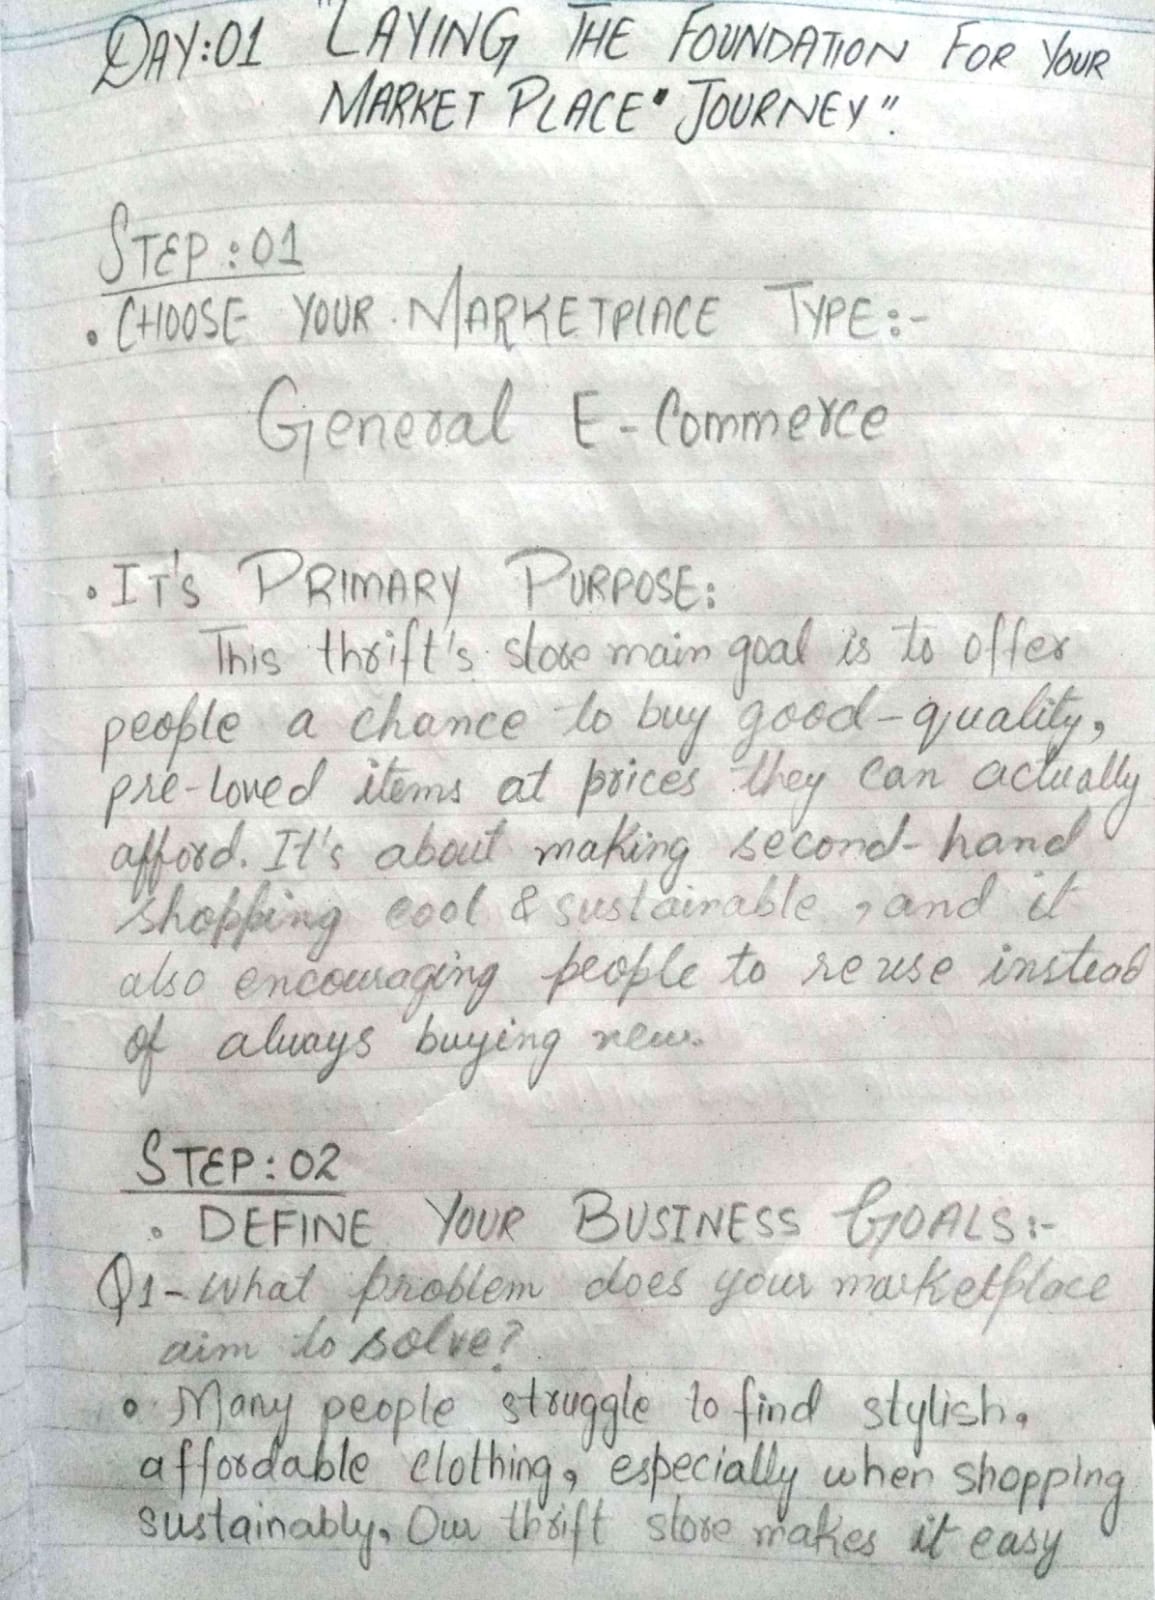 DAY:01 "LAYING THE FOUNDATION FOR YOUR
MARKET PLACE" JOURNEY".
STEP:01
• CHOOSE YOUR MARKETPLACE TYPE:-
General E-Commerce
• IT'S PRIMARY PURPOSE:
This thrift's store main goal is to offer
people a chance to buy good-quality,
pre-loved items at prices they can actually
afford. It's about making second-hand
shopping cool & sustainable, and it
also encouraging people to reuse instead
of always buying new.
STEP:02
• DEFINE YOUR BUSINESS GOALS:-
Q1- What problem does your marketplace
aim to solve?
• Many people struggle to find stylish,
affordable clothing, especially when shopping
sustainably. Our thrift store makes it easy